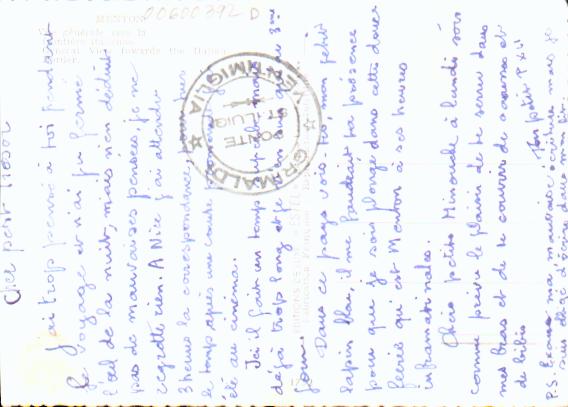 MENTON
Vue générale vers la
frontière italienne
General View towards the Italian
Border.
00600392 D
Cher petit trésor
J'ai trop pensé à toi pendant
le voyage et n'ai pu fermé
l'œil de la nuit, mais n'en déduit
pas de mauvaises pensées, je ne
regrette rien. A Nice j'ai attendu
3 heures la correspondance,
le temps après une courte promenade
été au cinéma.
Ici il fait un temps mais
déjà trop long et je 3ème
jour.
Dans ce pays vois-tu, mon petit
lapin bleu, il me faudrait ta présence
pour que je sois plongé dans cette douce
féerie qu'est Menton à ses heures
Chérie petite Minouche à lundi soir
comme prévu le plaisir de te serrer dans
mes bras et de te couvrir de caresses et
de bibis
Ton petit
P.S. Excuse ma mauvaise écriture mais je
suis obligé d'écrire dans mon lit.
GRIMALDI
VENTIMIGLIA
PONTE
ST LUIGI